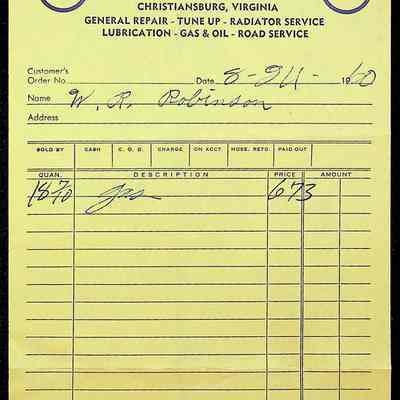 CHRISTIANSBURG, VIRGINIA
GENERAL REPAIR - TUNE UP - RADIATOR SERVICE
LUBRICATION - GAS & OIL - ROAD SERVICE
Customer's
Order No. Date 8-24- 1960
Name W. R. Robinson
Address
SOLD BY CASH C. O. D. CHARGE ON ACCT. MDSE. RETD. PAID OUT
QUAN. DESCRIPTION PRICE AMOUNT
18 7/10 gas 6 73